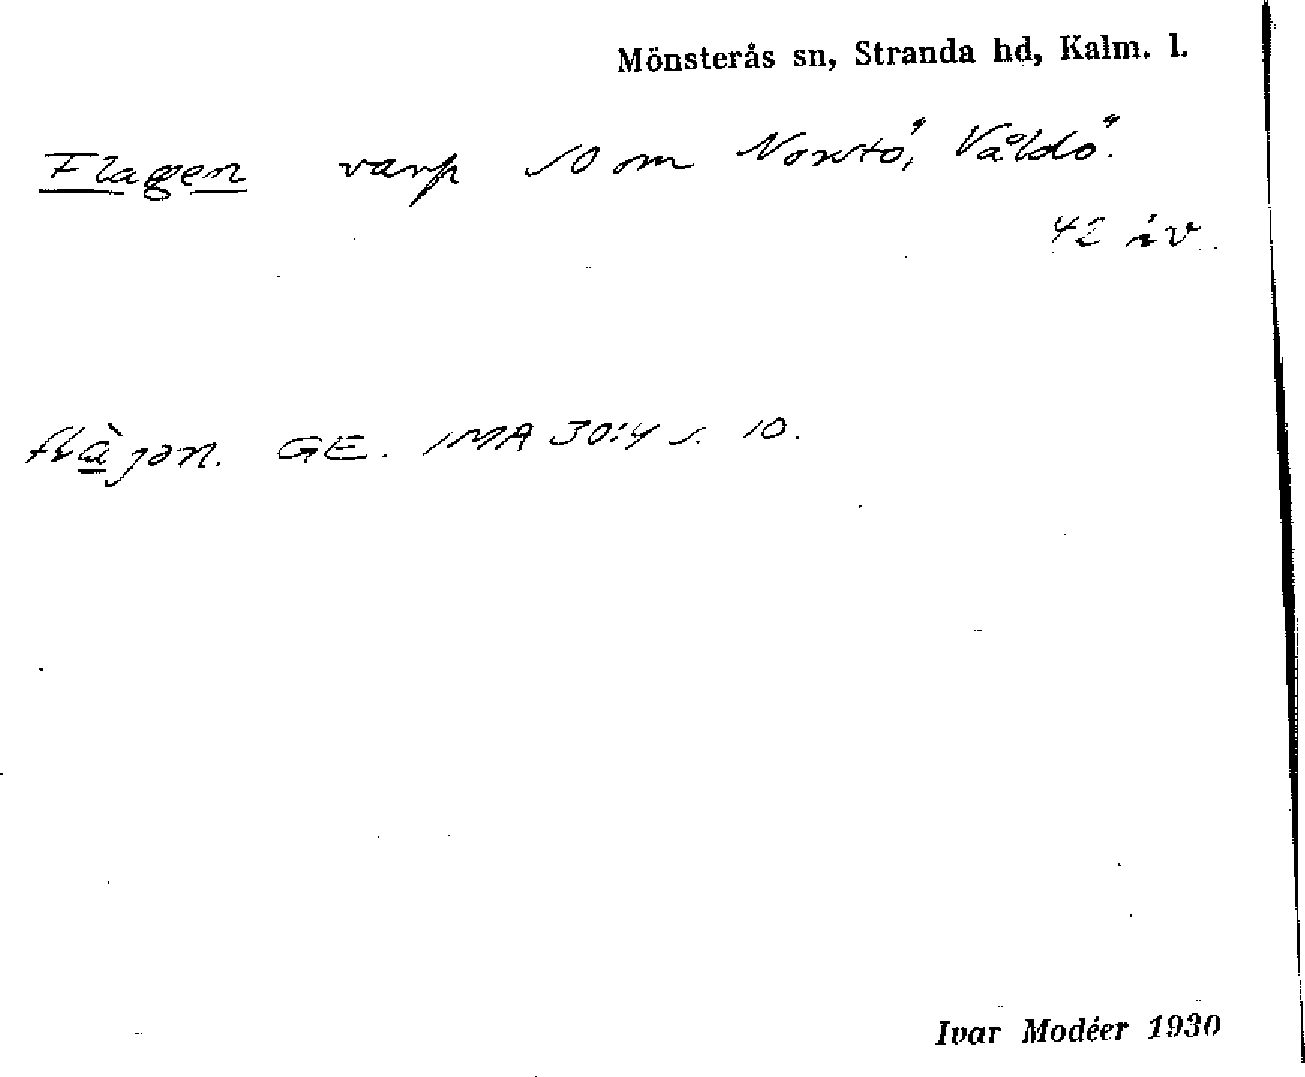 Mönsterås sn, Stranda hd, Kalm. l.
Flagen varp SO om Norrtö, Våldö.
42 iv.
flàgən. GE. IMA 30:4 s. 10.
Ivar Modéer 1930